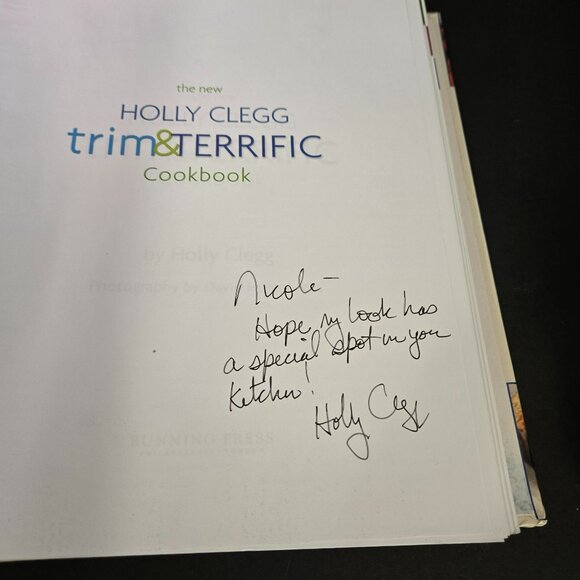 the new
HOLLY CLEGG
trim&TERRIFIC
Cookbook
by Holly Clegg
Photography by David
Nicole-
Hope my book has
a special spot in you
Kitchen!
Holly Clegg
RUNNING PRESS
PHILADELPHIA • LONDON